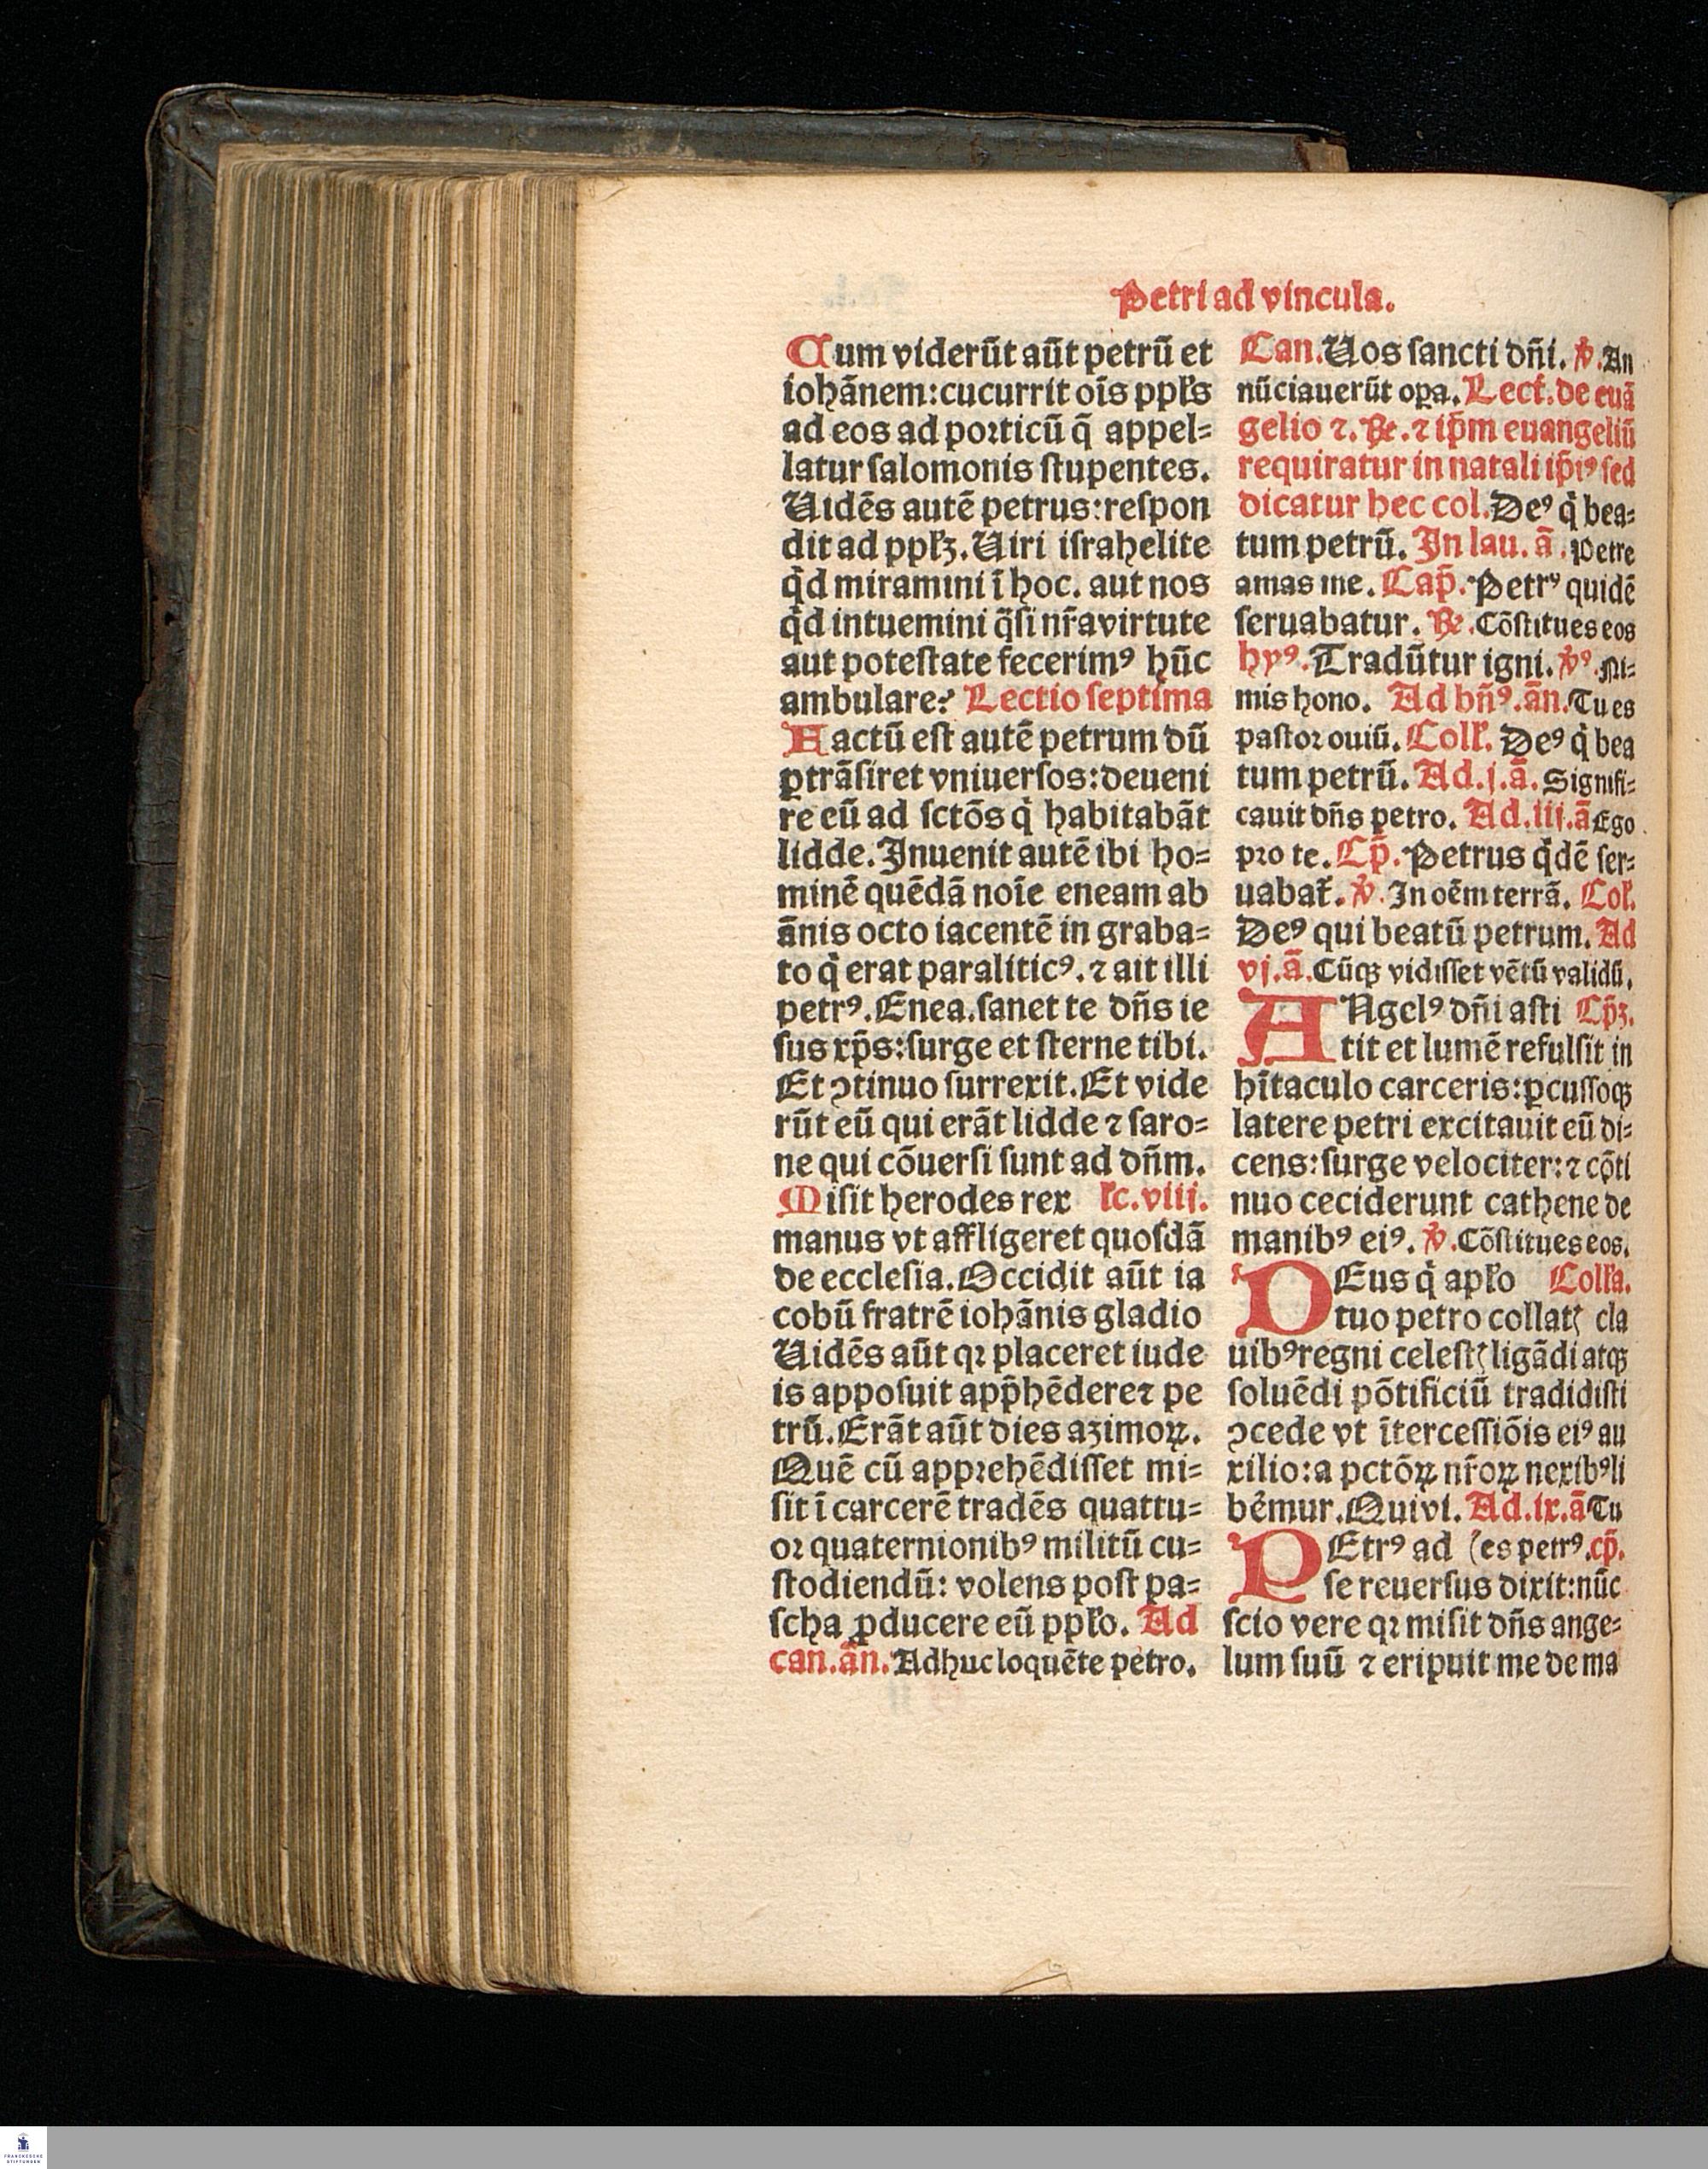 Petri ad vincula.
Cum viderūt aūt petrū et
iohānem: cucurrit oīs ppłs
ad eos ad porticū q̄ appel=
latur salomonis stupentes.
Uidēs autē petrus: respon
dit ad ppłꝫ. Uiri israhelite
qͥd miramini ī hoc. aut nos
qͥd intuemini q̄si nr̄a virtute
aut potestate fecerimꝰ hūc
ambulare? Lectio septima
Factū est autē petrum dū
ꝑtrāsiret vniuersos: deueni
re eū ad sctōs qͥ habitabāt
lidde. Inuenit autē ibi ho=
minē quēdā noīe eneam ab
ānis octo iacentē in graba=
to qͥ erat paraliticꝰ. ⁊ ait illi
petrꝰ. Enea. sanet te dn̄s ie
sus xp̄s: surge et sterne tibi.
Et ꝯtinuo surrexit. Et vide
rūt eū qui erāt lidde ⁊ saro=
ne qui cōuersi sunt ad dn̄m.
Misit herodes rex łc. viij.
manus vt affligeret quosdā
de ecclesia. Occidit aūt ia
cobū fratrē iohānis gladio
Uidēs aūt qꝛ placeret iude
is apposuit app̄hēdere⁊ pe
trū. Erāt aūt dies azimoꝝ.
Quē cū apprehēdisset mi=
sit ī carcerē tradēs quattu=
or quaternionibꝰ militū cu=
stodiendū: volens post pa=
scha ꝓducere eū ppło. Ad
can. ān. Adhuc loquēte petro.
Can. Uos sancti dn̄i. ℣. An
nūciauerūt oꝑa. Lect̄. de euā
gelio ⁊. ℞. ⁊ ip̄m euangeliū
requiratur in natali ip̄iꝰ sed
dicatur hec col. Deꝰ qͥ bea=
tum petrū. In lau. ā. Petre
amas me. Cap̄. Petrꝰ quidē
seruabatur. ℞. Cōstitues eos
hyꝰ. Tradūtur igni. ℣ꝰ. Ni=
mis hono. Ad bn̄ꝰ. ān. Tu es
pastor ouiū. Coll̄. Deꝰ qͥ bea
tum petrū. Ad. j. ā. Signifi=
cauit dn̄s petro. Ad. iij. ā Ego
pro te. Cp̄. Petrus qͥdē ser=
uabat̄. ℣. In oēm terrā. Coł.
Deꝰ qui beatū petrum. Ad
vj. ā. Cūqꝫ vidisset vētū validū.
ANgelꝰ dn̄i asti Cp̄ꝫ.
tit et lumē refulsit in
hītaculo carceris: ꝑcussoqꝫ
latere petri excitauit eū di=
cens: surge velociter: ⁊ cōti
nuo ceciderunt cathene de
manibꝰ eiꝰ. ℣. Cōstitues eos.
DEus qͥ apło Colła.
tuo petro collatꝭ cla
uibꝰ regni celestꝭ ligādi atqꝫ
soluēdi pōtificiū tradidisti
ꝯcede vt ītercessiōis eiꝰ au
xilio: a pctōꝝ nr̄oꝝ nexibꝰ li
bēmur. Qui vi. Ad. ix. ā Tu
PEtrꝰ ad (es petrꝰ. cp̄.
se reuersus dixit: nūc
scio vere qꝛ misit dn̄s ange=
lum suū ⁊ eripuit me de ma
FRANCKESCHE
STIFTUNGEN